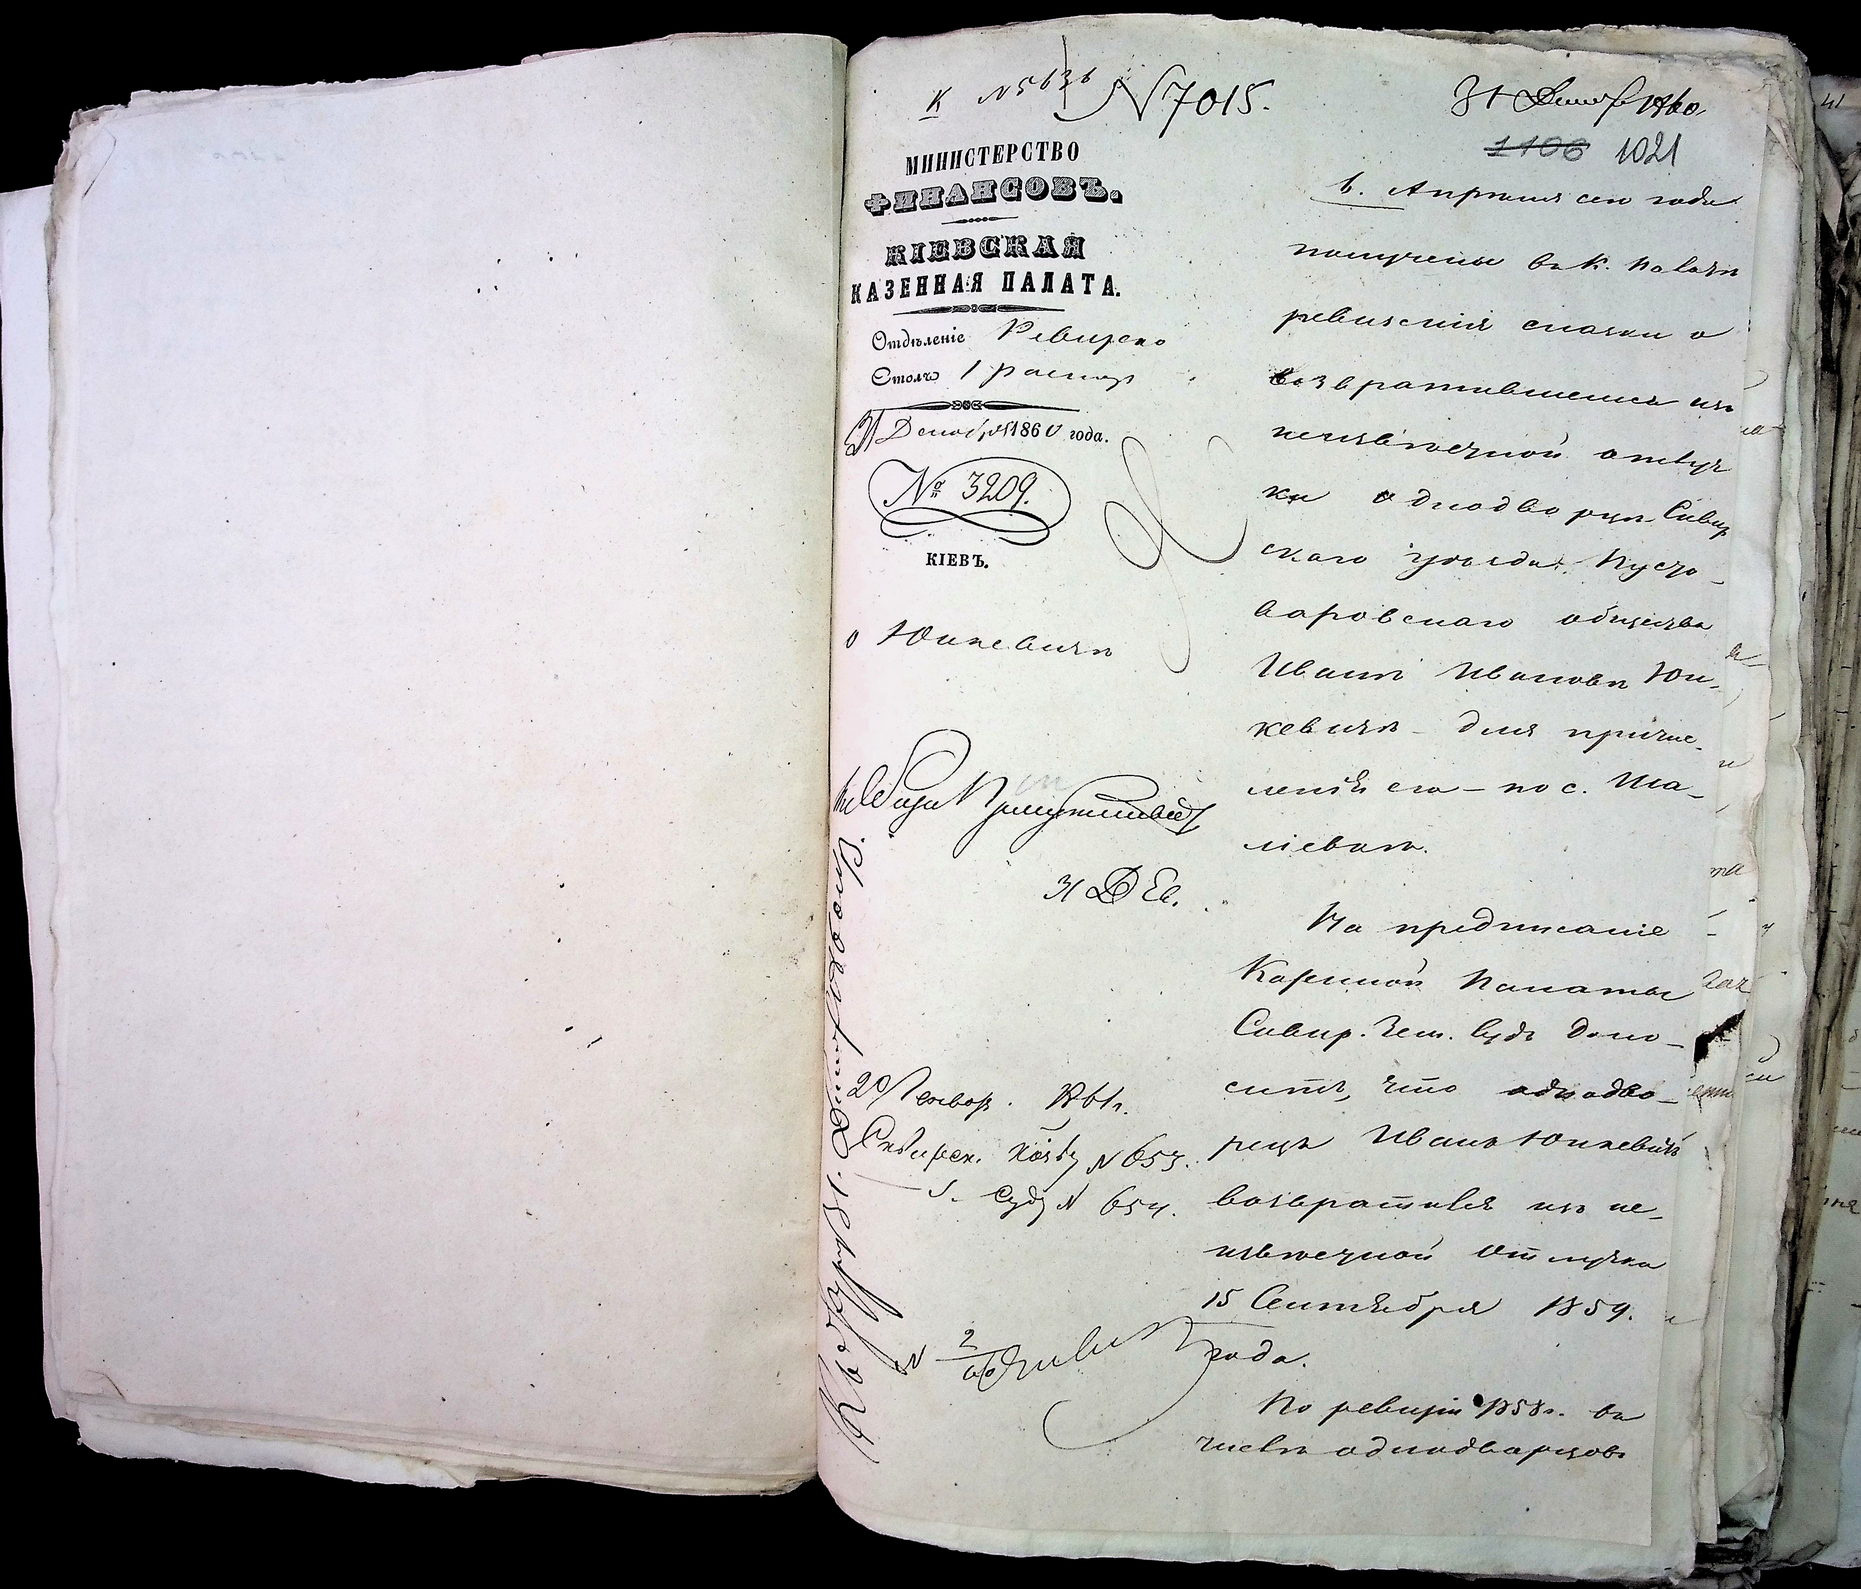 К №5636 N7015.
31 Декабр 1860.
1106 1021
МИНИСТЕРСТВО
ФИНАНСОВЪ.
КІЕВСКАЯ
КАЗЕННАЯ ПАЛАТА.
Отдѣленіе Ревизско
Столъ 1
31 Декабря 1860 года.
№ 3209.
КІЕВЪ.
о Юнкевичѣ
31 Дек.
20 Генвар. 1861 г.
Сквирск. Казну N 653.
З. Суду N 654.
N 2
Въ Апрѣлѣ сего года
получены въ К. Палатѣ
ревизскія сказки о
возвратившемся изъ
неизвѣстной отлуч
ки однодворцѣ Сквир
скаго уѣзда. Пусто-
варовскаго общества
Иванѣ Ивановѣ Юн-
кевичѣ - для причис-
ленія его - по с. Ма-
ліевкѣ.
На предписаніе
Казенной Палаты
Сквир. Зем. Судъ доно-
ситъ, что однодво-
рецъ Иванъ Юнкевичъ
возвратился изъ не-
извѣстной отлучки
15 Сентября 1859.
года.
По ревизіи 1858 г. въ
числѣ однодворцовъ